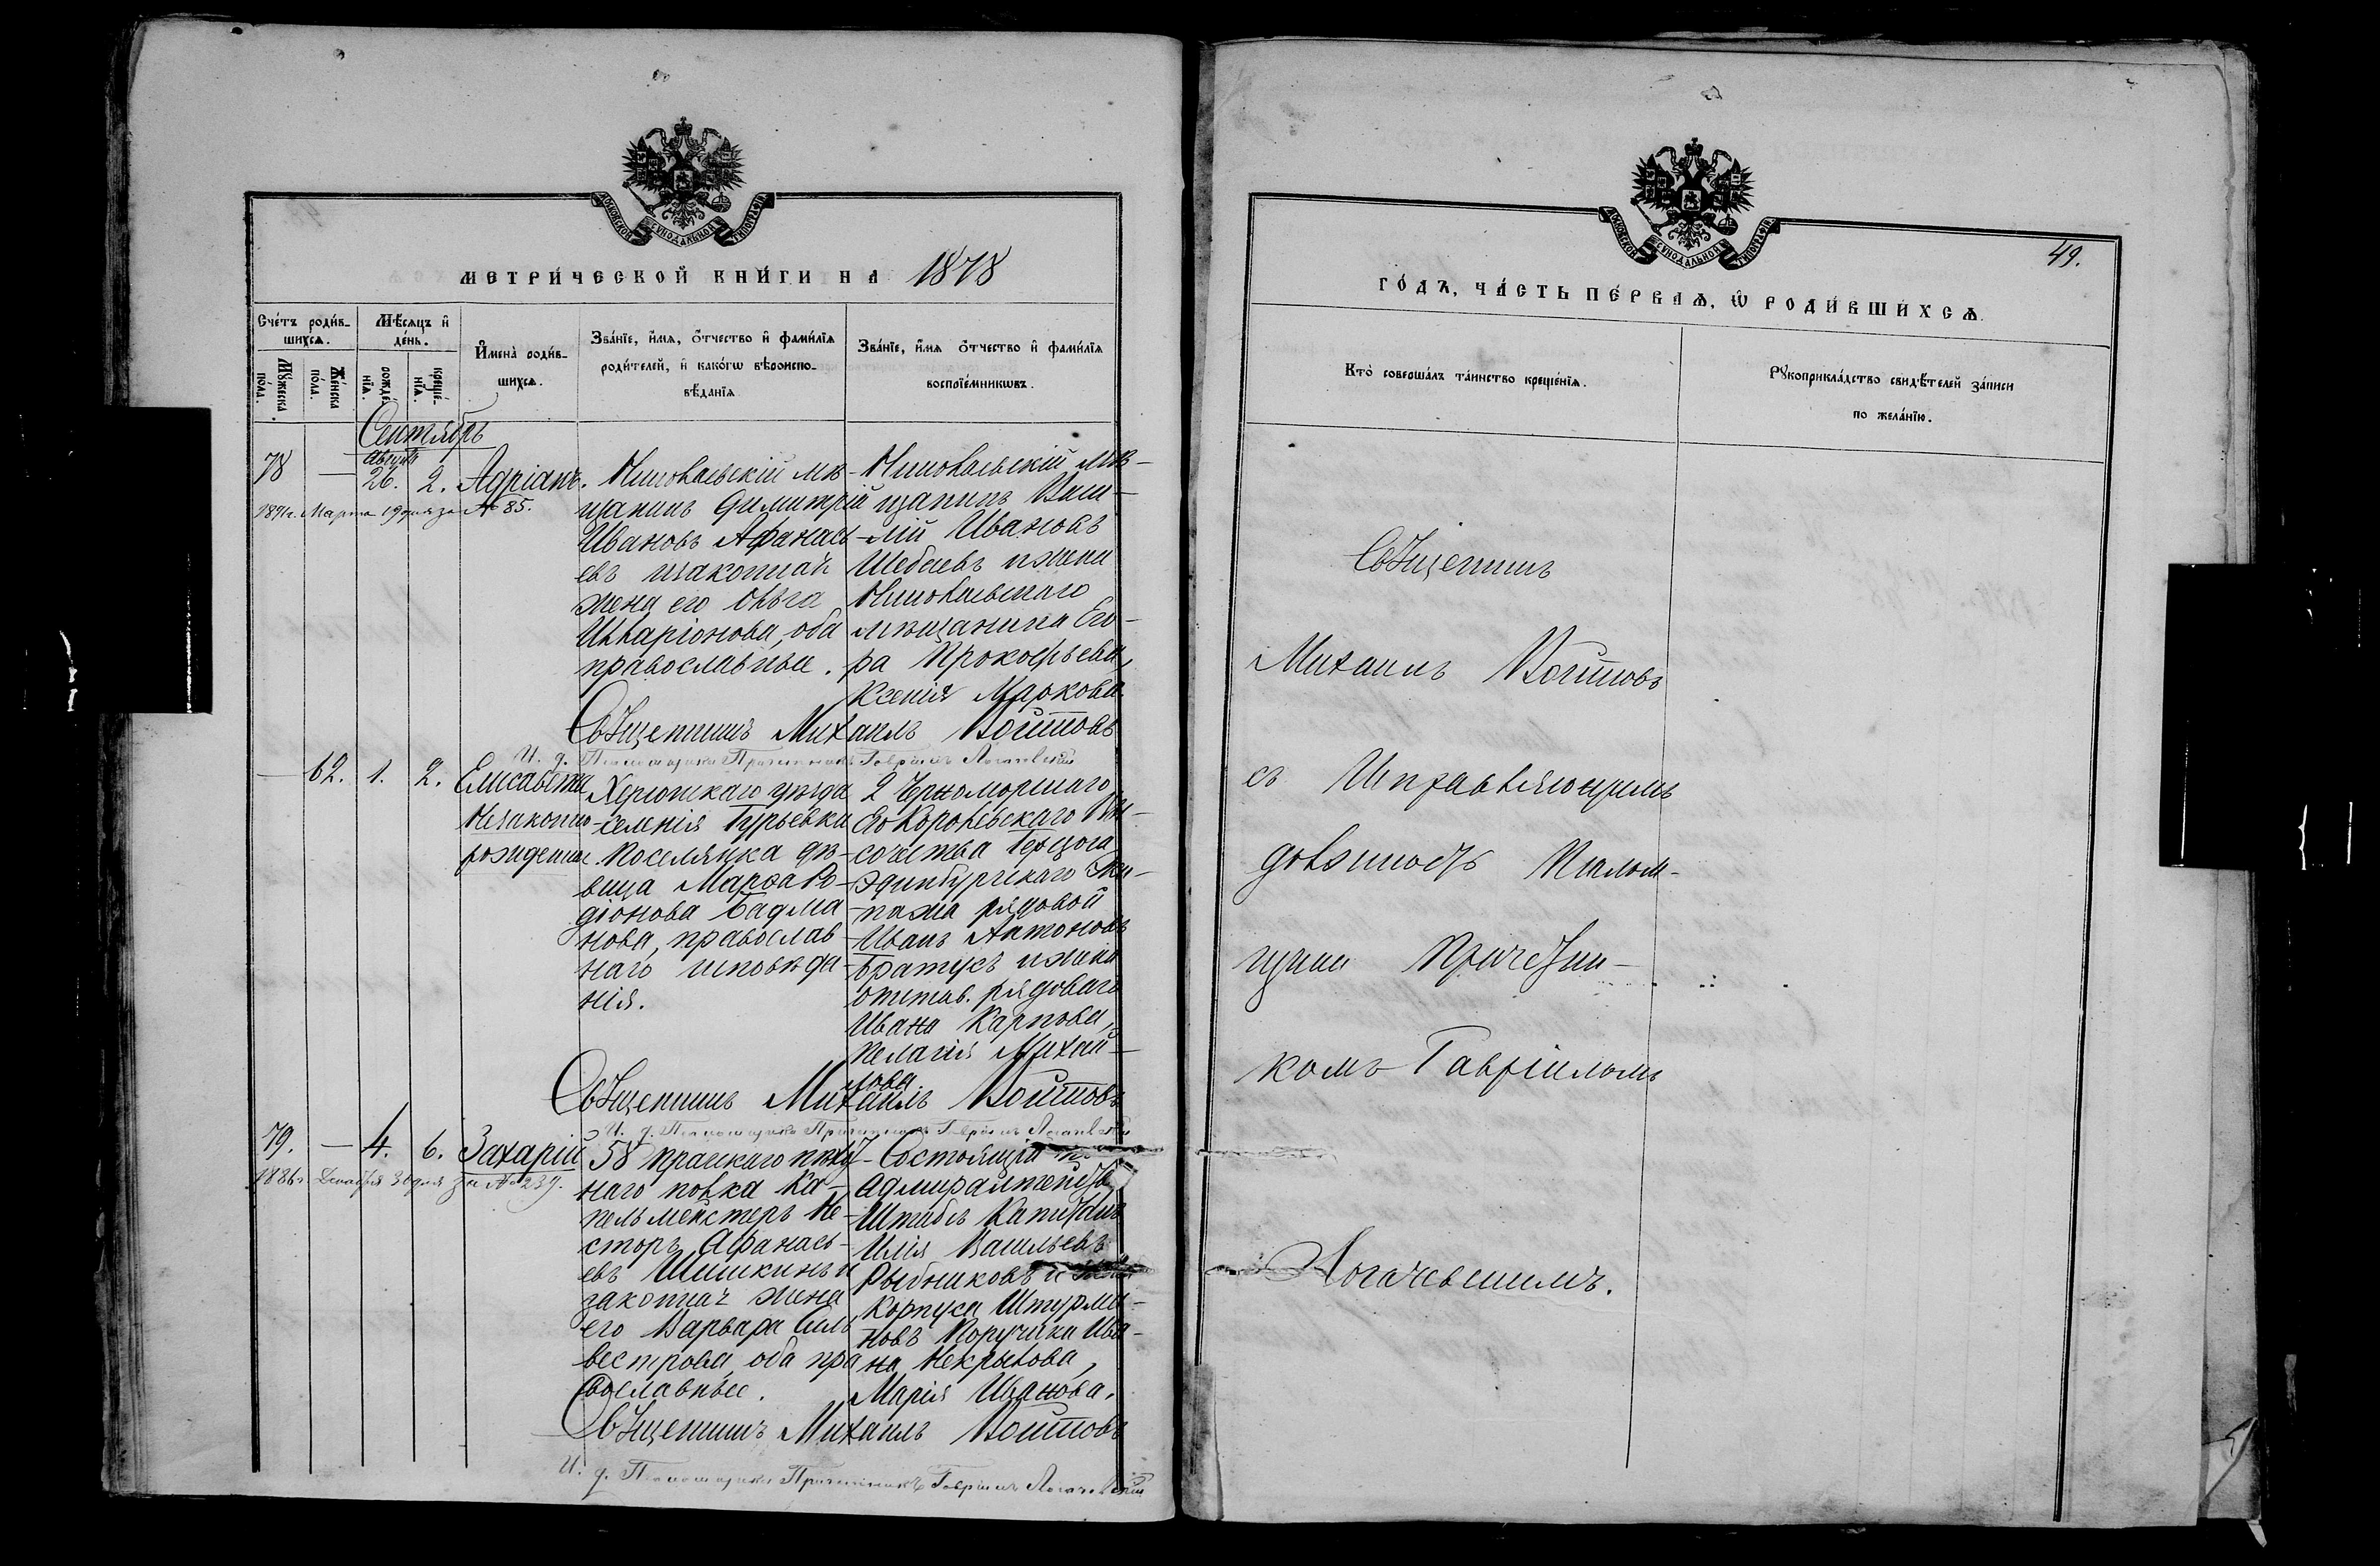 МОСКОВСКОЙ СѴНОДАЛЬНОЙ ТИПОГРАФІИ
МЕТРИ́ЧЕСКОЙ КНИ́ГИ НА 1878
Сче́тъ роди́в-
шихсѧ.
Мѣ́сяцъ и҆
де́нь.
Мꙋ́жеска
по́ла.
Же́нска
по́ла.
рожде́-
нїѧ.
креще́-
нїѧ.
И҆мена̀ роди́в-
шихсѧ.
Зва́нїе, и҆́мѧ, ѻ҆́тчество и҆ фами́лїѧ
роди́телей, и҆ како́гѡ вѣроиспо-
вѣ́данїѧ
Зва́нїе, и҆́мѧ ѻ҆́тчество и҆ фами́лїѧ
воспрїе́мникѡвъ.
Сентябрь
78 — Августа 26. 2. Адріанъ.
Марта 19 дня за № 85.
Николаевскій мѣ-
щанинъ Димитрій
Ивановъ Афанась-
евъ и законная
жена его Ольга
Илларіонова, оба
православные.
Николаевскій мѣ-
щанинъ Васи-
лій Ивановъ
Шебаевъ и жена
Николаевскаго
мѣщанина Его-
ра Прокофьева,
Ксенія Маркова.
Священникъ Михаилъ Войтовъ
И. д. Псаломщика Причетникъ Гавріилъ Логачевскій
— 62. 1. 2. Елисавета
Незаконно-
рожденная.
Херсонскаго уѣзда
селенія Гурьевки
поселянка дѣ-
вица Марѳа Ро-
діонова Бадма
нова, православ
наго исповѣда-
нія.
2 Черноморскаго
Его Королевскаго Вы-
сочества Герцога
Эдинбургскаго Эки-
пажа рядовой
Иванъ Антоновъ
Братусъ и жена
отстав. рядоваго
Ивана Карпова,
Пелагія Михай-
лова
Священникъ Михаилъ Войтовъ
И. д. Псаломщика Причетникъ Гавріилъ Логачевскій
79. — 4. 6. Захарій
1886 г. Декабря 30 дня за № 239.
58 Прагскаго пѣхот-
наго полка Ка-
пельмейстеръ Не-
сторъ Афанась-
евъ Шишкинъ и
законная жена
его Варвара Силь
вестрова, оба пра
вославные.
Состоящій
Адмиралтейств
Штабсъ Капитанъ
Илія Васильевъ
Рыбниковъ и жена
Корпуса Штурма-
новъ Поручика Ива-
на Некрылова,
Марія Иванова.
Священникъ Михаилъ Войтовъ
И. д. Псаломщика Причетникъ Гавріилъ Логачевскій
МОСКОВСКОЙ СѴНОДАЛЬНОЙ ТИПОГРАФІИ
49.
ГО́ДЪ, ЧА́СТЬ ПЕ́РВАѦ, Ѡ҆ РОДИ́ВШИХСѦ.
Кто̀ соверша́лъ та́инство креще́нїѧ.
Рꙋкоприкла́дство свидѣ́телей за́писи
по жела́нїю.
Священникъ
Михаилъ Войтовъ
съ Исправляющимъ
должность Псалом-
щика Причетни-
комъ Гавріиломъ
Логачевскимъ.